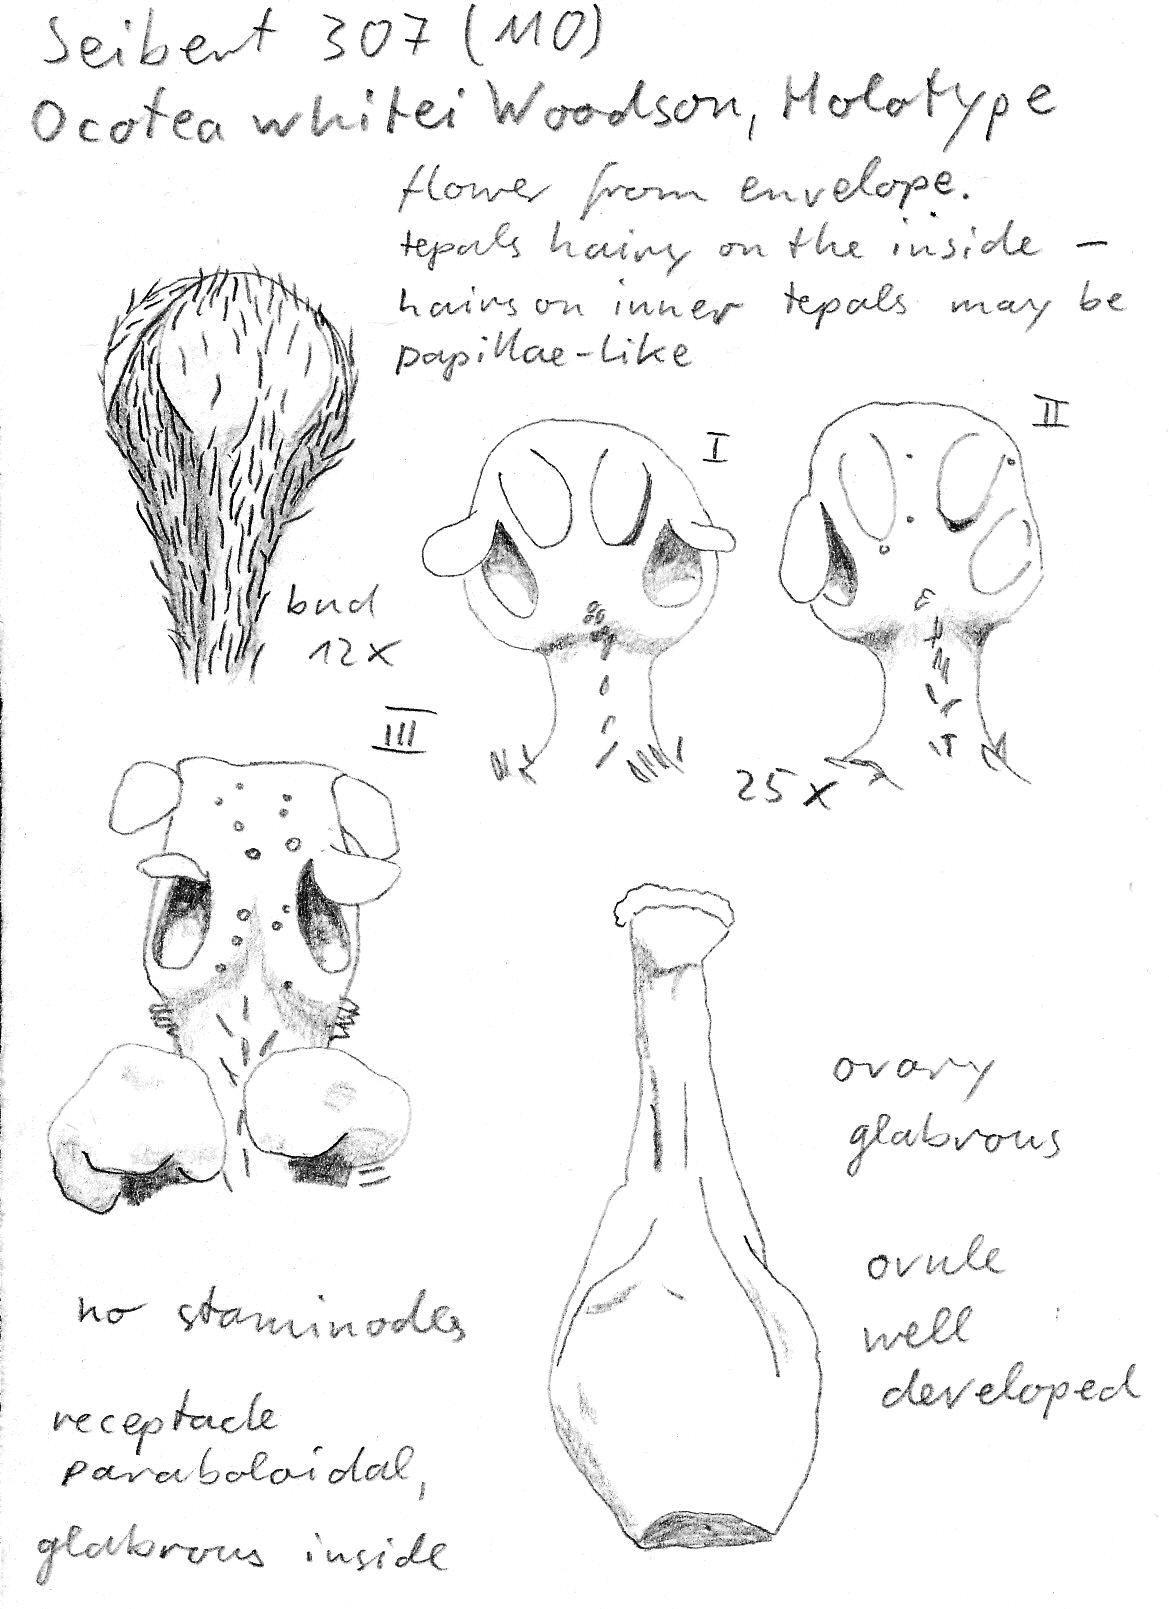 Seibert 307 (MO)
Ocotea whitei Woodson, Holotype
flower from envelope.
tepals hairy on the inside –
hairs on inner tepals may be
papillae-like
I
II
bud
12x
III
25x
ovary
glabrous
ovule
well
developed
no staminodes
receptacle
paraboloidal,
glabrous inside